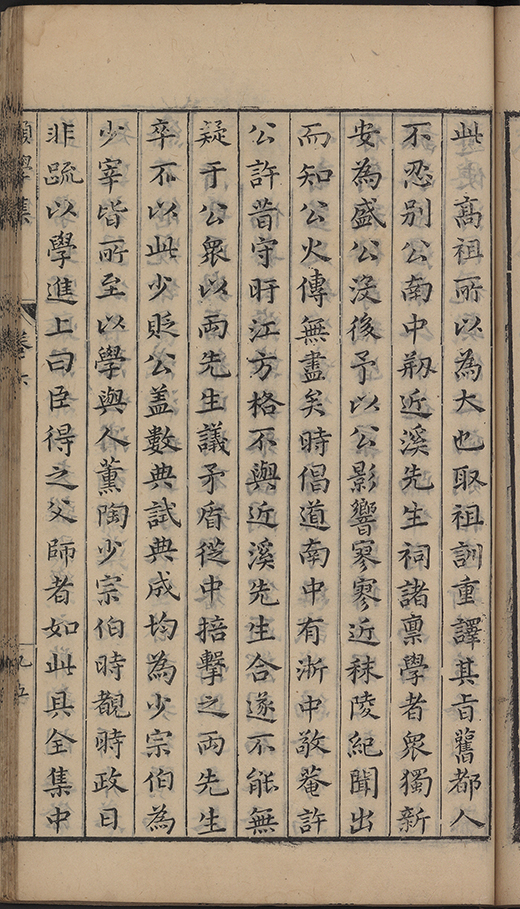 此高祖所以為大也取祖訓重譯其旨舊都人
不忍別公南中剏近溪先生祠諸稟學者眾獨新
安為盛公沒後予以公影響寥寥近秣陵紀聞出
而知公火傳無盡矣時倡道南中有浙中敬菴許
公許昔守盱江方格不與近溪先生合遂不能無
疑于公眾以兩先生議矛盾從中掊擊之兩先生
卒不以此少貶公蓋數典試典成均為少宗伯為
少宰皆所至以學與人薰陶少宗伯時覩時政日
非疏以學進上曰臣得之父師者如此具全集中
學集
卷六